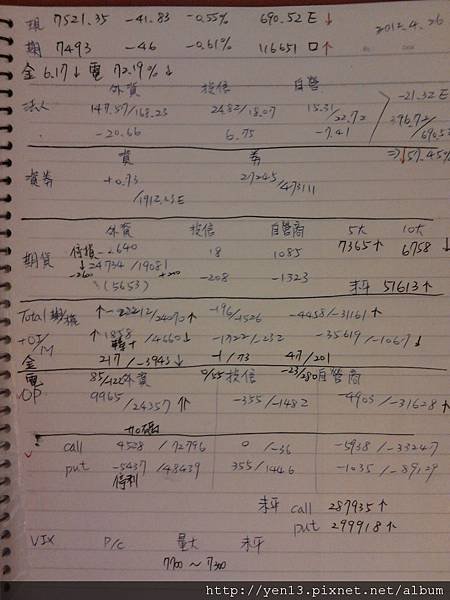 現 7521.35 -41.83 -0.55% 690.52 E ↓
2012.4.26
期 7493 -46 -0.61% 116651 口 ↑
金 6.17 ↓ 電 72.19% ↓
外資 投信 自營
法人 147.57/168.23 24.82/18.07 15.31/22.72
-21.32 E
-20.66 6.75 -7.41
396.72/690.52
⇒ ↓57.45%
資 券
資券 +0.73 27245/473111
/1912.23E
外資 投信 自營商 5大 10大
期貨 停損 -2640 18 1085 7365 ↑ 6758 ↓
24734/19081
-2600 +200
(5653) -208 -1323 未平 57613 ↑
Total
↑ -22212/24070 ↑ -196/1526 -4458/-31161 ↑
+OI/M ↑ 1858 /4660 ↓ -1722/232 -35619/-1067 ↓
金 217/-3943 ↓ -1/73 47/201
電 85/422 外資 0/55 投信 -23/280 自營商
OP 9965/24357 ↑ -355/-1482 -4903/-31628 ↑
加碼
call 4528/72796 0/-36 -5938/-33247
put -5437/48439 355/1446 -1035/-89129
停利
未平 call 287935 ↑
put 299918 ↑
VIX P/C 量大 未平
7700 ~ 7300
http://yen13.pixnet.net/album